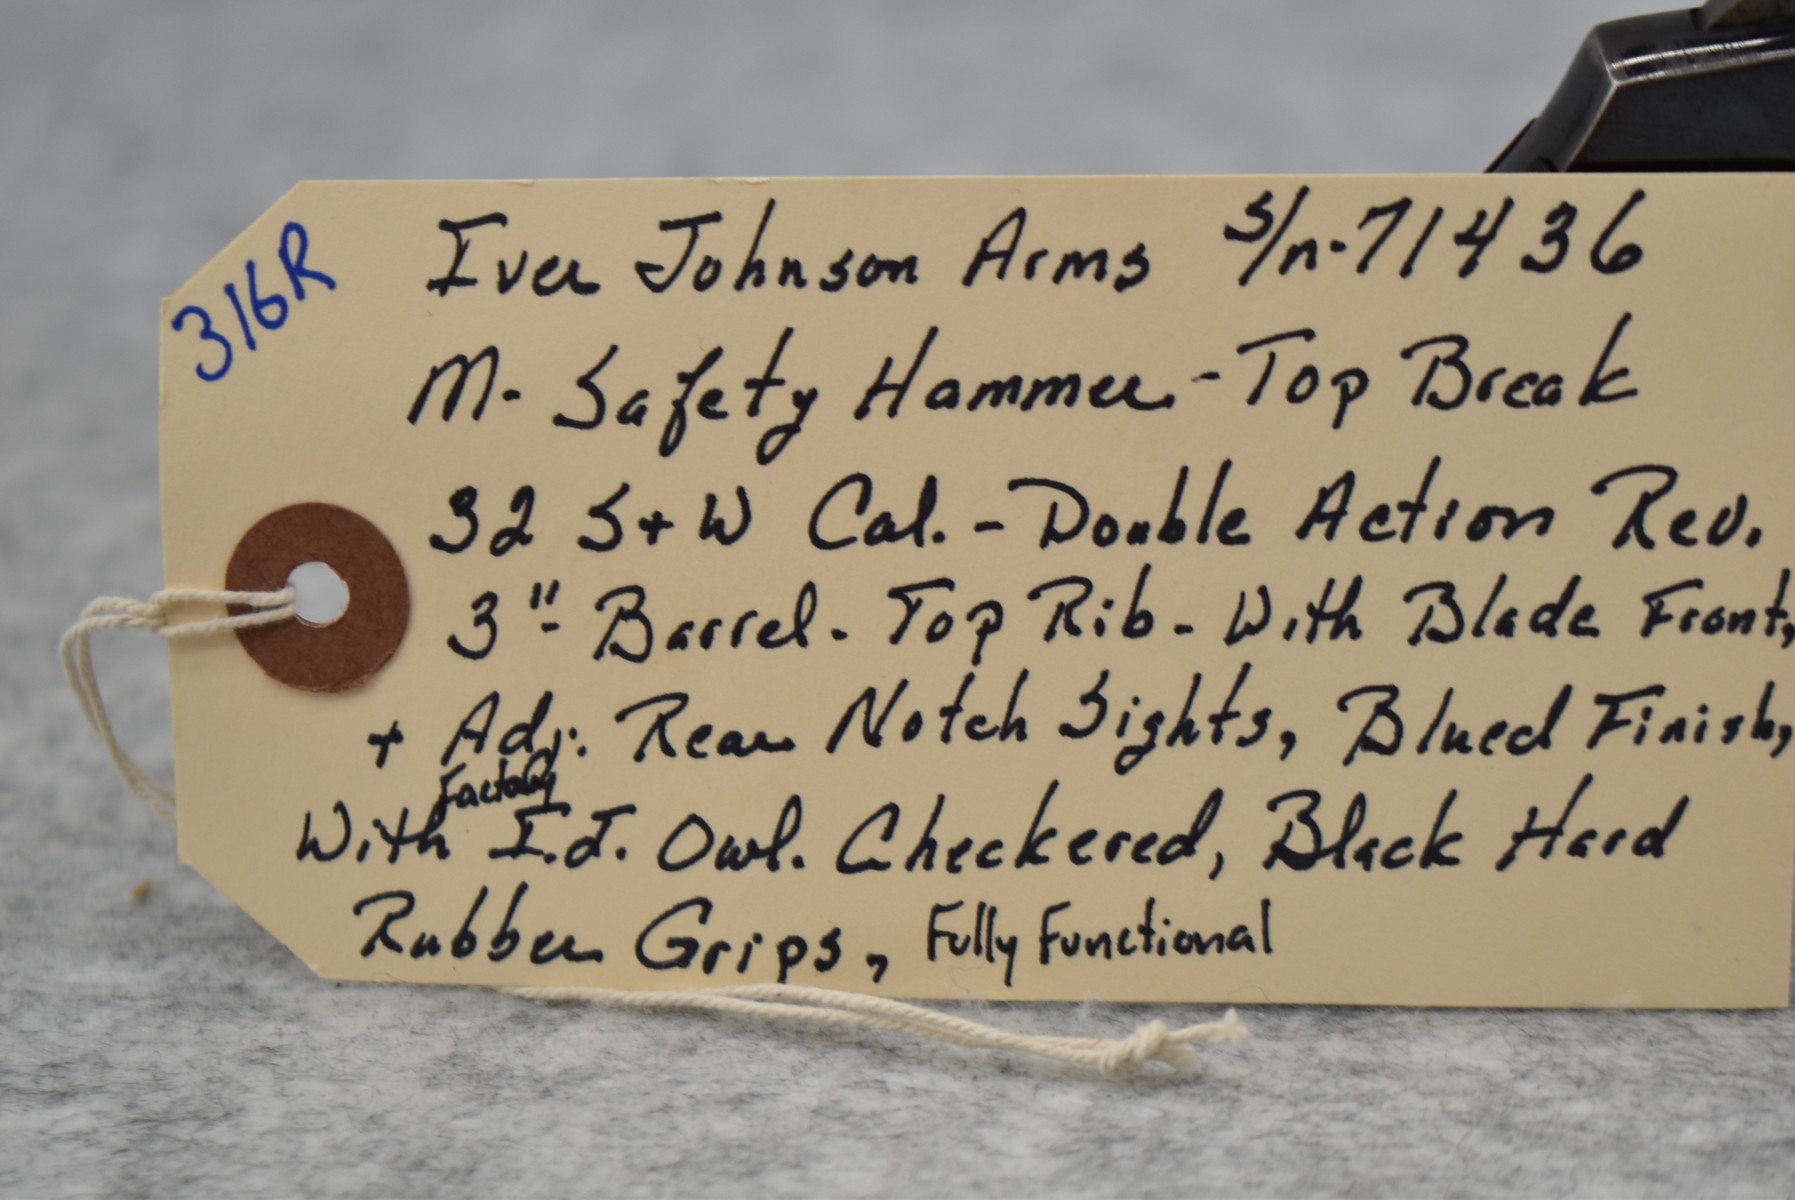 316R
Iver Johnson Arms s/n-71436
M- Safety Hammer - Top Break
32 S+W Cal. - Double Action Rev.
3" - Barrel - Top Rib - With Blade Front,
+ Adj. Rear Notch Sights, Blued Finish,
Factory
With I.J. Owl. Checkered, Black Hard
Rubber Grips, Fully Functional